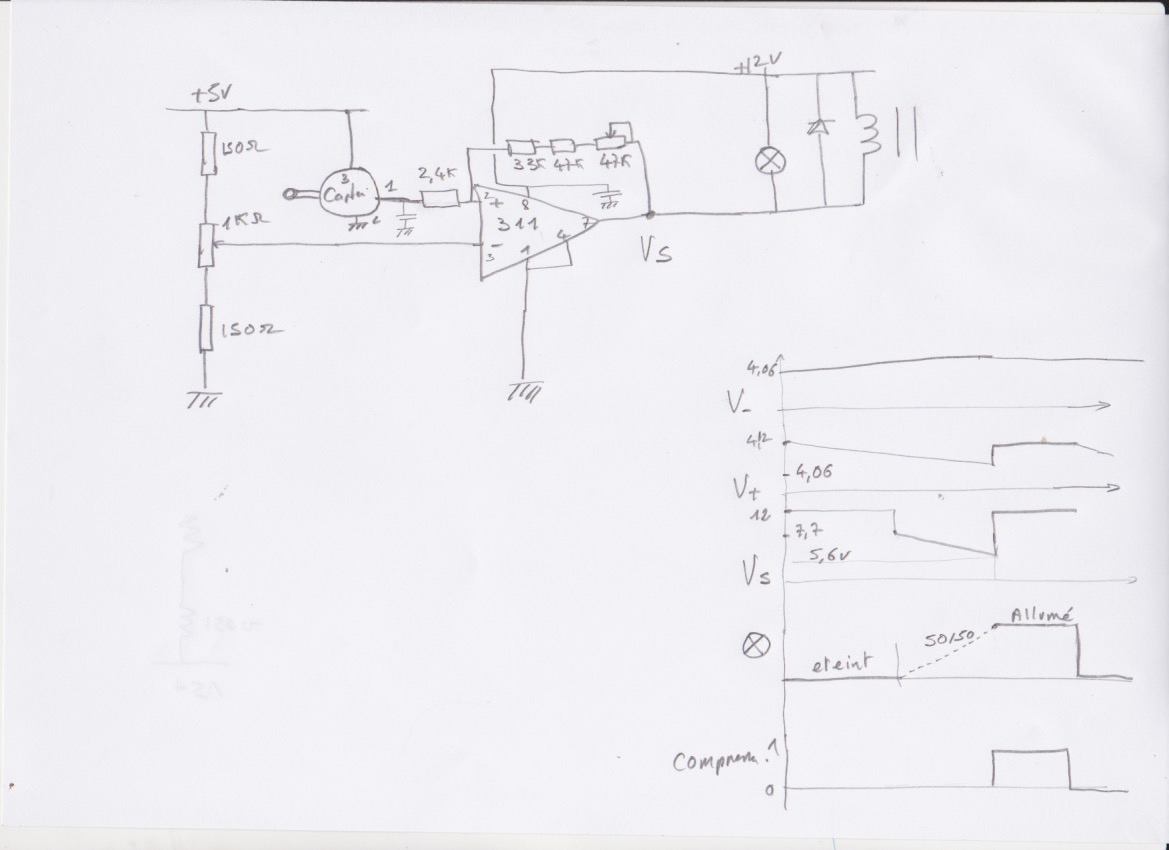 +5V
150Ω
1KΩ
150Ω
3
Capteur
1
2
2,4K
33K 47K 47K
2 +
8
311
7
4
1
-
3
+12V
Vs
4,06
V-
4,2
4,06
V+
12
7,7
5,6v
Vs
eteint
50/50
Allumé
1
0